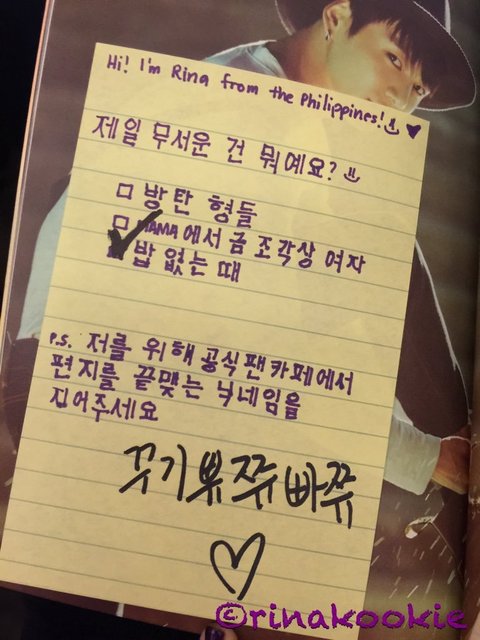 Hi! I'm Rina from the Philippines!
제일 무서운 건 뭐예요?
방탄 형들
MAMA에서 금 조각상 여자
밥 없는 때
P.S. 저를 위해 공식팬카페에서
편지를 끝맺는 닉네임을
지어주세요
꾸기뾰쮸빠쮸
©rinakookie